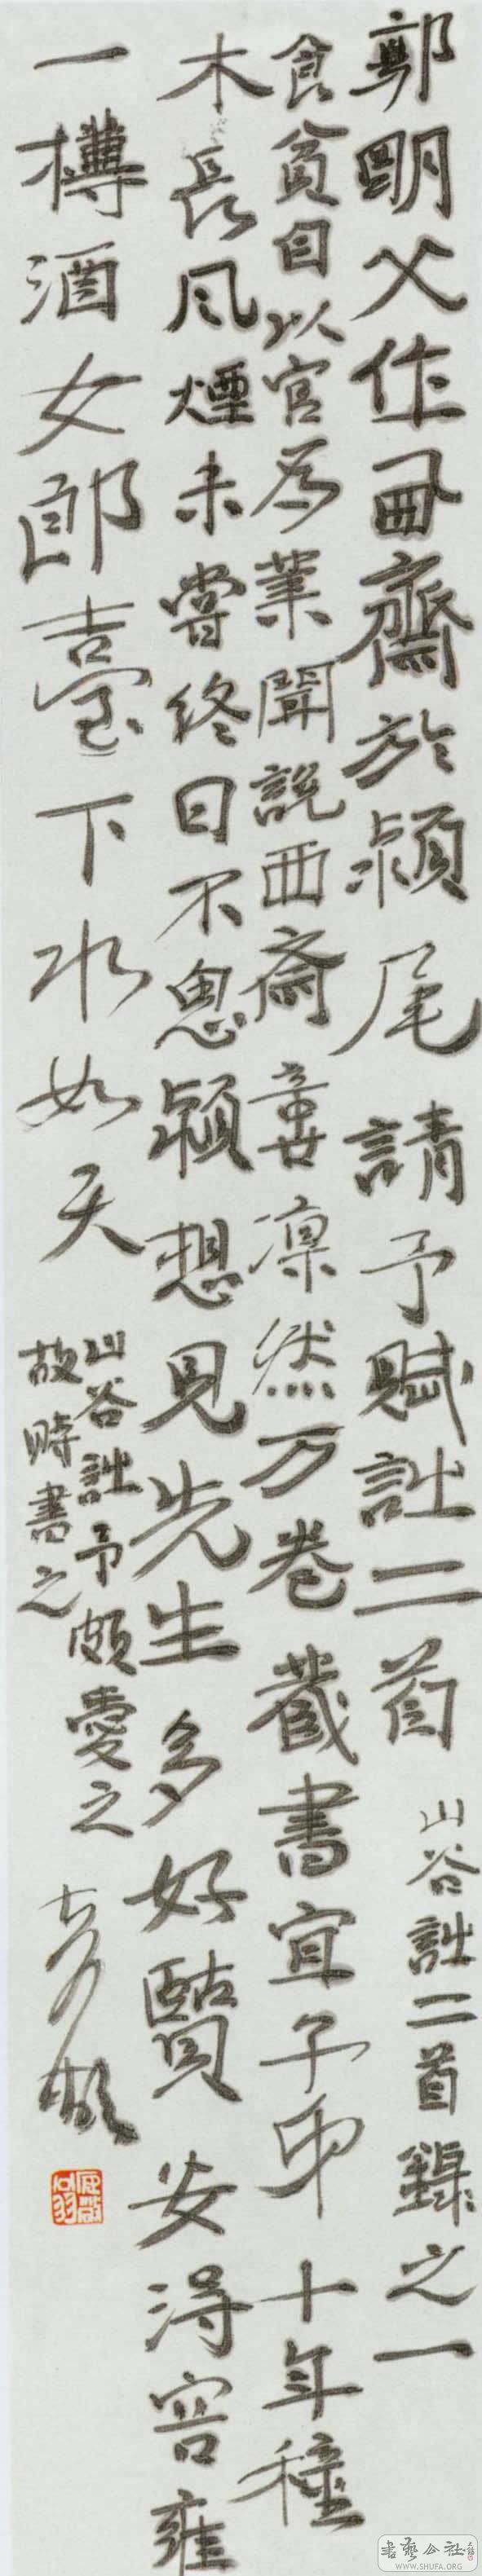 郭明父作西齋於潁尾請予賦詩二首
山谷詩二首錄之一
食貧自以官為業聞說西斎意凜然万卷藏書宜子弟十年種
木長风煙未嘗終日不思潁想見先生多好賢安得容雍
一樽酒女郎臺下水如天
山谷詩予頗愛之
故時書之
書藝公社
WWW.SHUFA.ORG